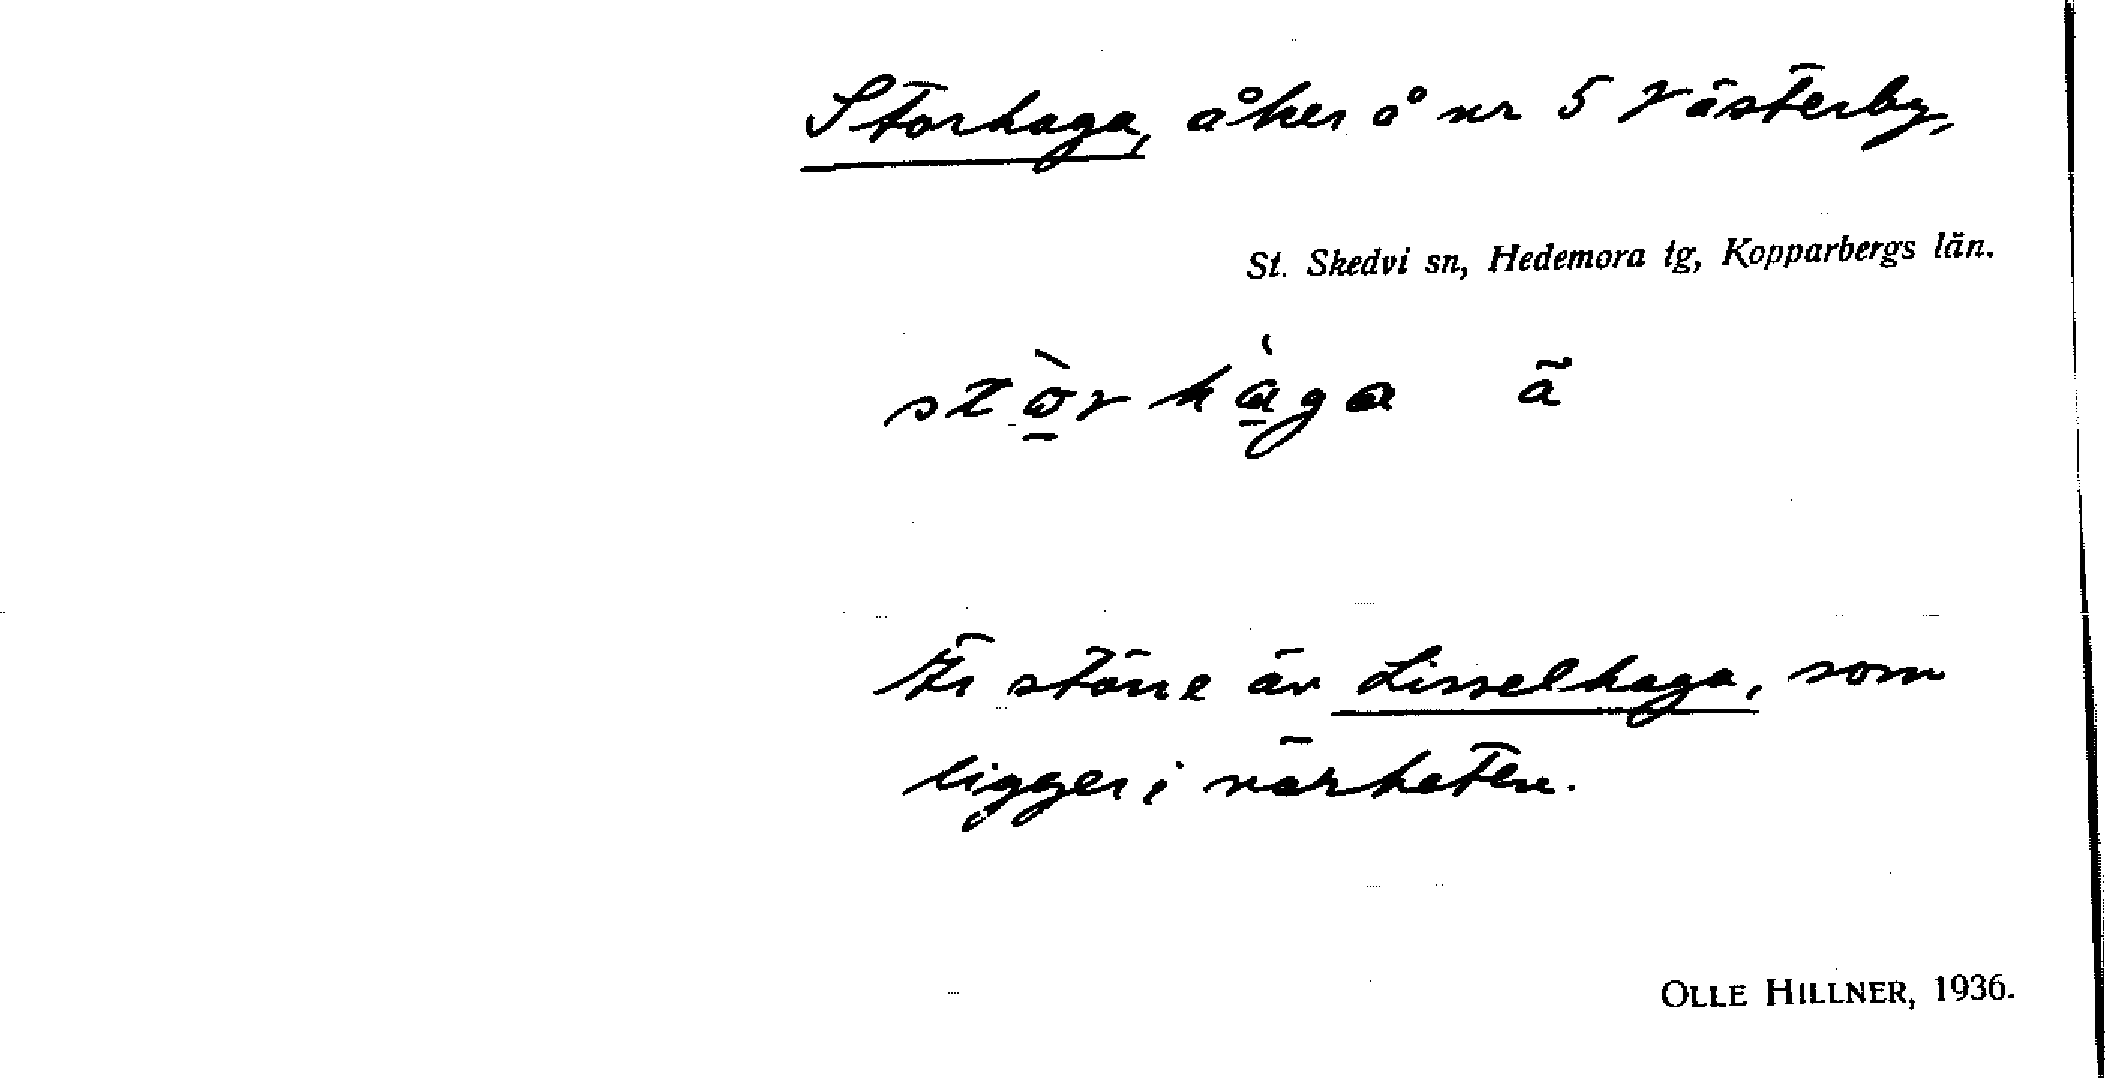 Storhaga, åker å nr 5 Västerby,
St. Skedvi sn, Hedemora tg, Kopparbergs län.
stò̱rhà̱ga ã
Är större än Lisselhaga, som
ligger i närheten.
OLLE HILLNER, 1936.